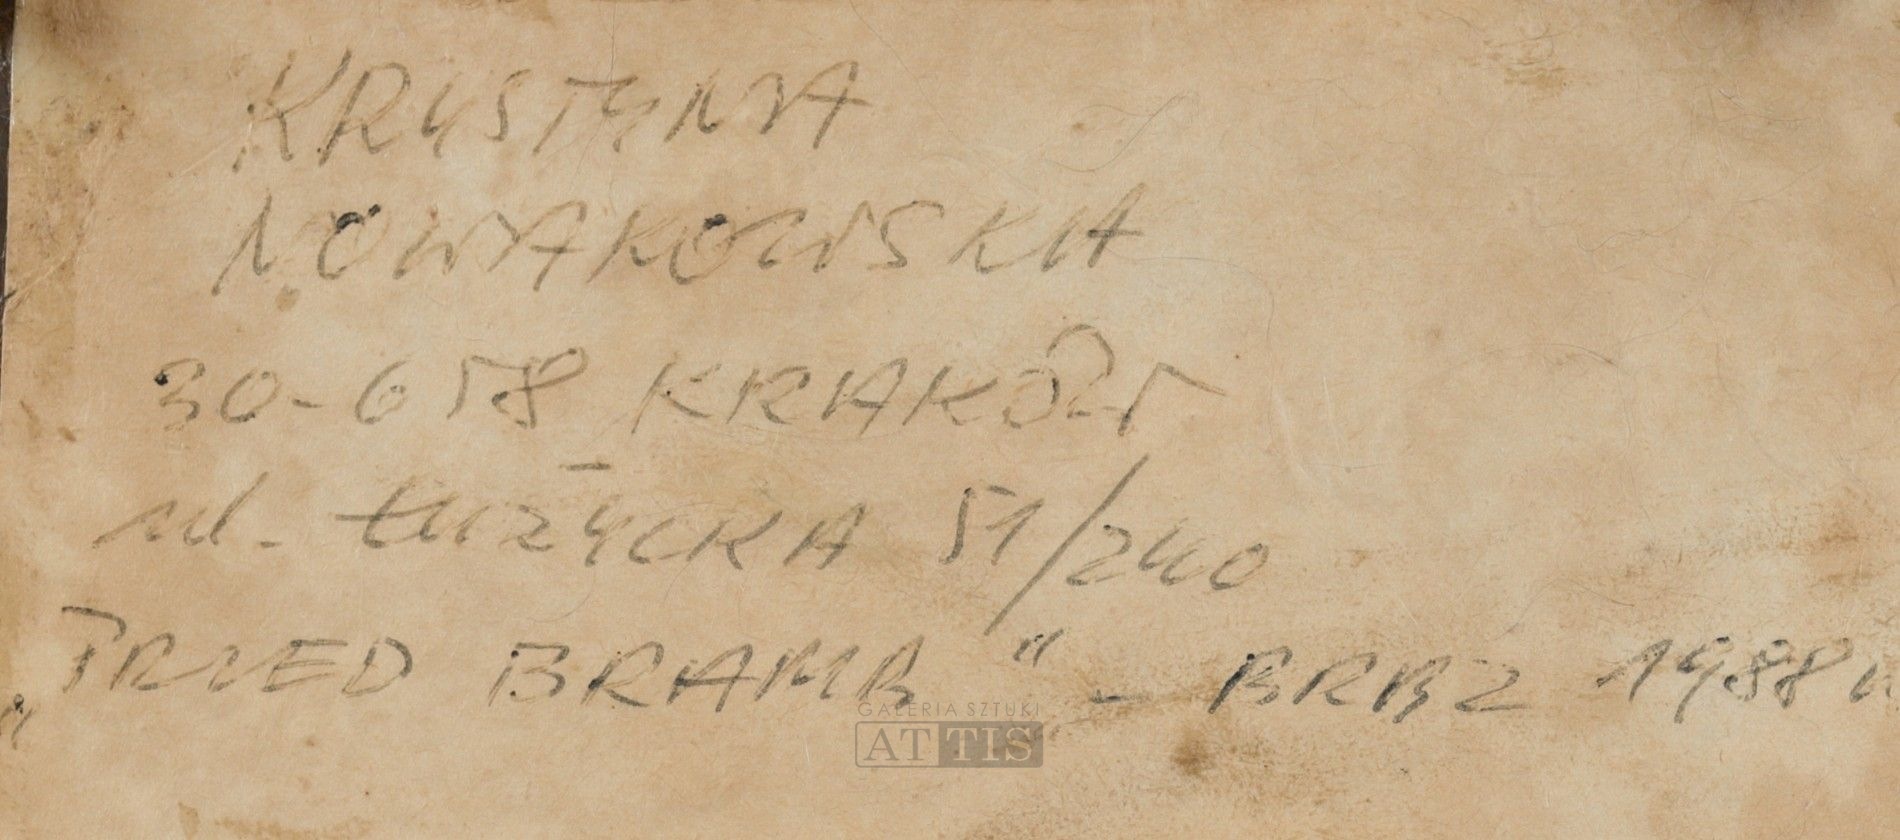 KRYSTYNA
NOWAKOWSKA
30-658 KRAKÓW
ul. ŁUŻYCKA 51/240
„PRZED BRAMĄ" - BRĄZ 1988
GALERIA SZTUKI
ATTIS